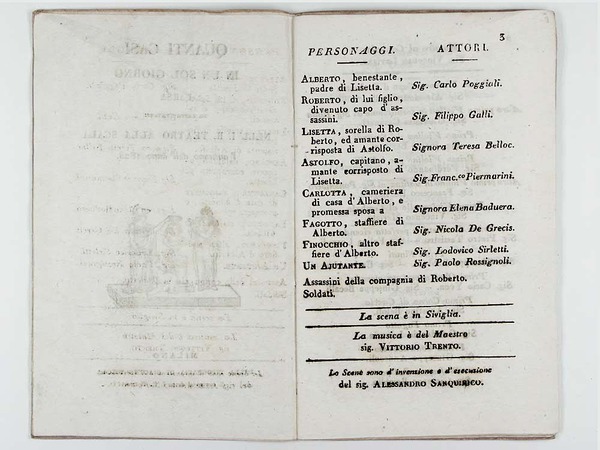 3
PERSONAGGI. ATTORI.
ALBERTO, benestante,
padre di Lisetta. Sig. Carlo Poggiali.
ROBERTO, di lui figlio,
divenuto capo d'as-
sassini. Sig. Filippo Galli.
LISETTA, sorella di Ro-
berto, ed amante cor-
risposta di Astolfo. Signora Teresa Belloc.
ASTOLFO, capitano, a-
mante corrisposto di
Lisetta. Sig. Franc.co Piermarini.
CARLOTTA, cameriera
di casa d'Alberto, e
promessa sposa a Signora Elena Baduera.
FAGOTTO, staffiere di
Alberto. Sig. Nicola De Grecis.
FINOCCHIO, altro staf-
fiere d'Alberto. Sig. Lodovico Sirletti.
UN AJUTANTE. Sig. Paolo Rossignoli.
Assassini della compagnia di Roberto.
Soldati.
La scena è in Siviglia.
La musica è del Maestro
sig. VITTORIO TRENTO.
Le Scene sono d'invenzione e d'esecuzione
del sig. ALESSANDRO SANQUIRICO.